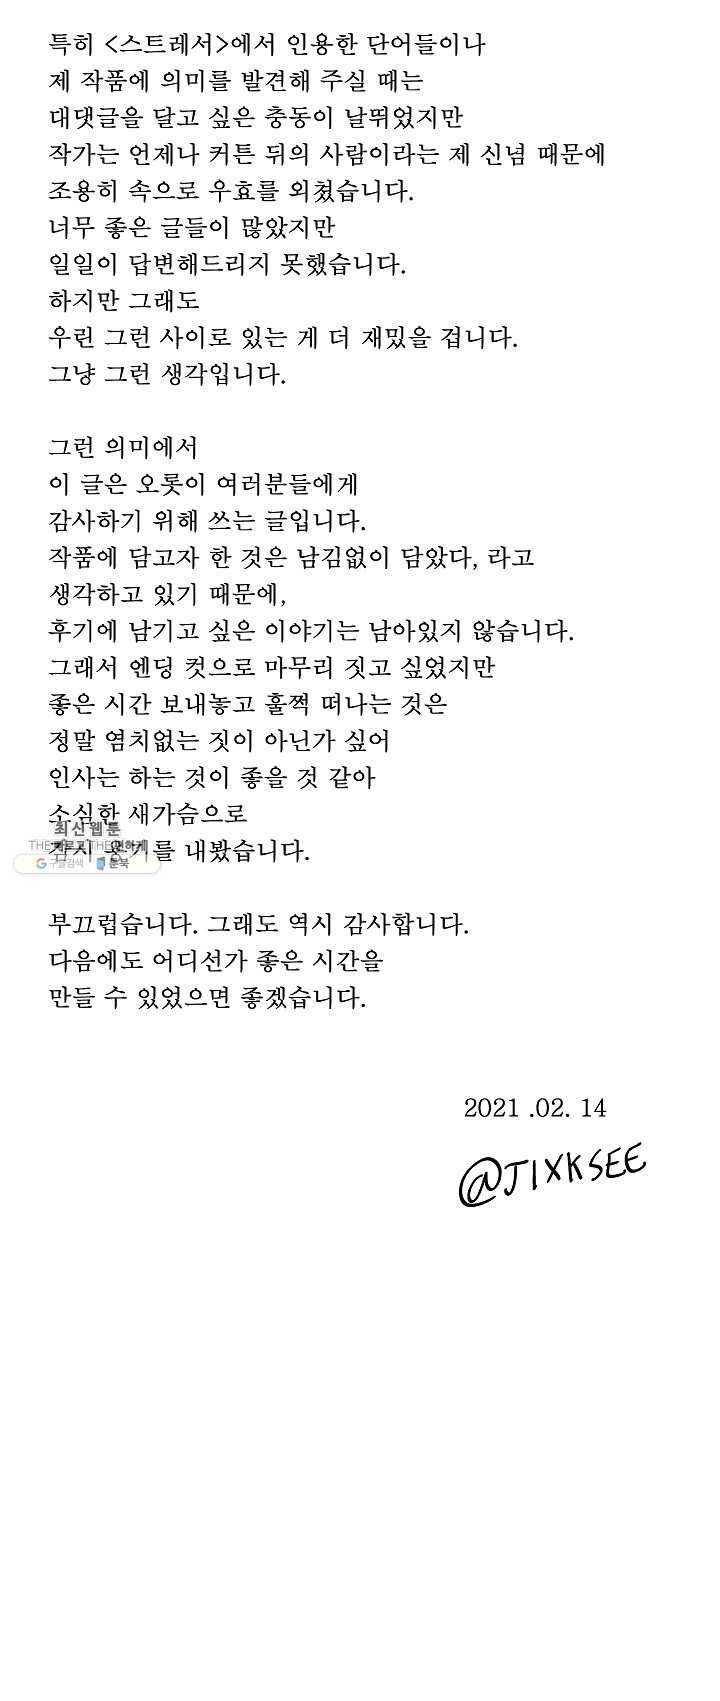 특히 <스트레서>에서 인용한 단어들이나
제 작품에 의미를 발견해 주실 때는
대댓글을 달고 싶은 충동이 날뛰었지만
작가는 언제나 커튼 뒤의 사람이라는 제 신념 때문에
조용히 속으로 우효를 외쳤습니다.
너무 좋은 글들이 많았지만
일일이 답변해드리지 못했습니다.
하지만 그래도
우린 그런 사이로 있는 게 더 재밌을 겁니다.
그냥 그런 생각입니다.
그런 의미에서
이 글은 오롯이 여러분들에게
감사하기 위해 쓰는 글입니다.
작품에 담고자 한 것은 남김없이 담았다, 라고
생각하고 있기 때문에,
후기에 남기고 싶은 이야기는 남아있지 않습니다.
그래서 엔딩 컷으로 마무리 짓고 싶었지만
좋은 시간 보내놓고 훌쩍 떠나는 것은
정말 염치없는 짓이 아닌가 싶어
인사는 하는 것이 좋을 것 같아
소심한 새가슴으로
최신웹툰
THE 빠르고 THE 편하게
잠시 용기를 내봤습니다.
구글검색 툰북
부끄럽습니다. 그래도 역시 감사합니다.
다음에도 어디선가 좋은 시간을
만들 수 있었으면 좋겠습니다.
2021 .02. 14
@JIXKSEE